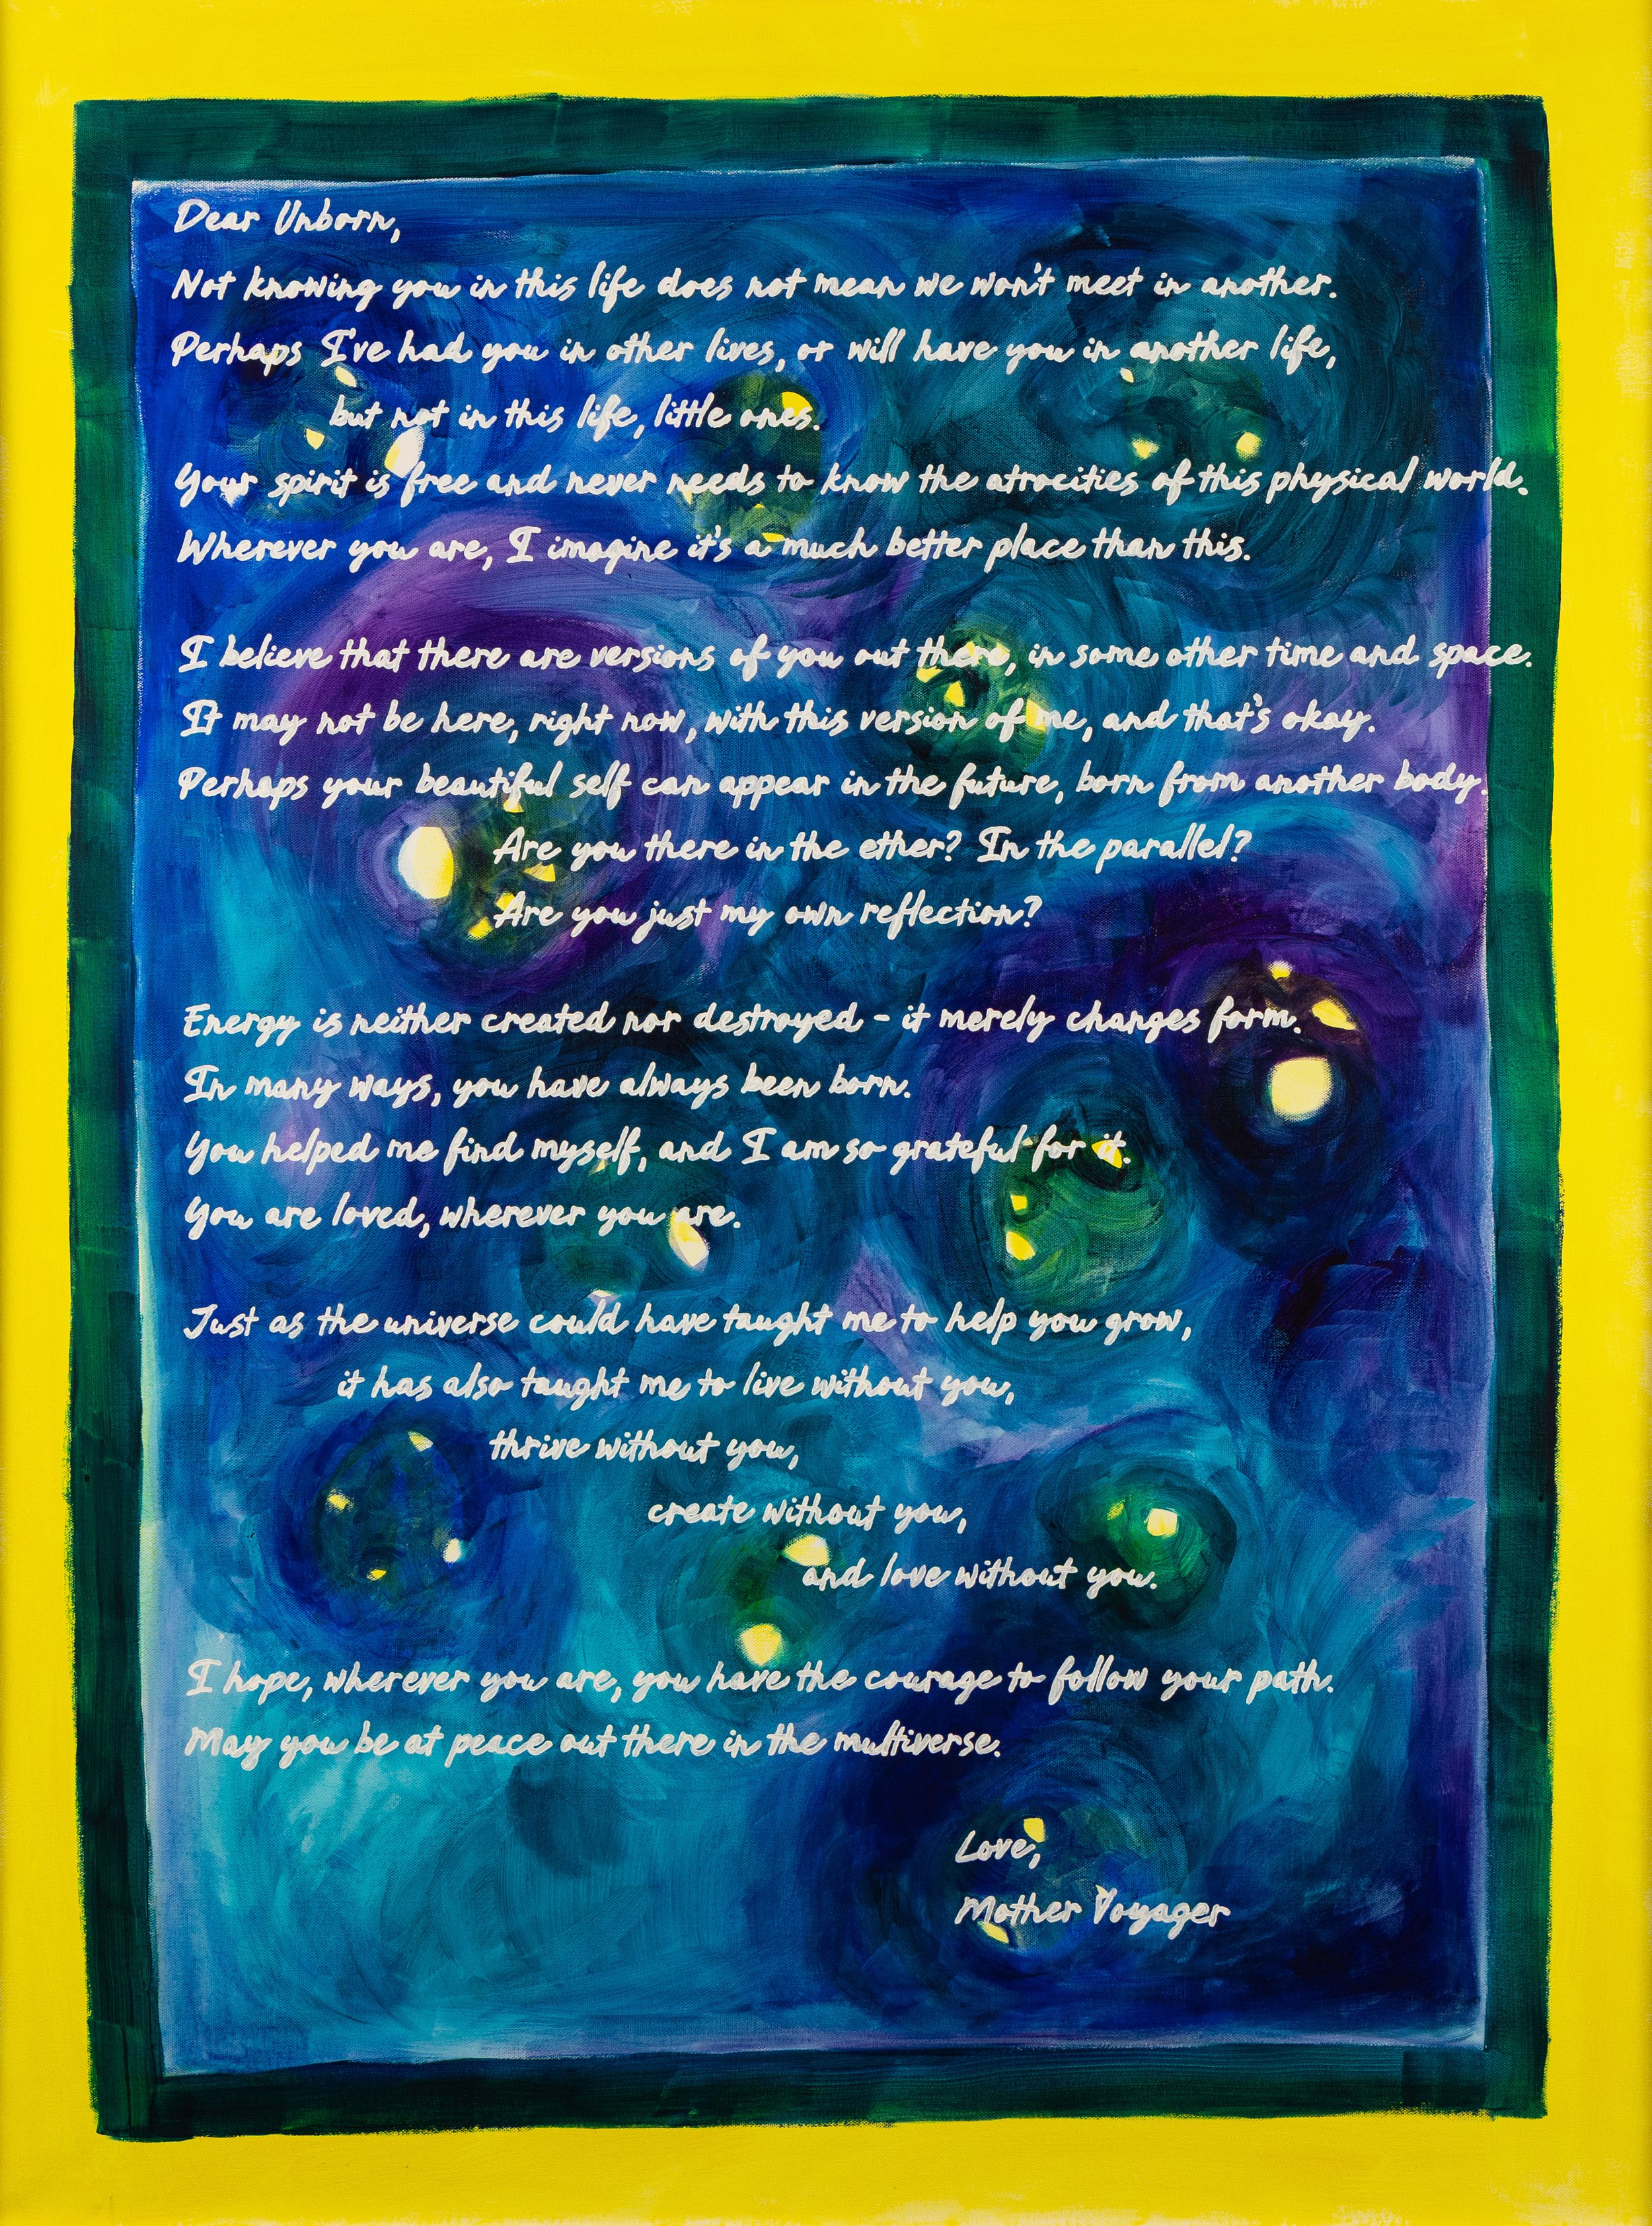 Dear Unborn,
Not knowing you in this life does not mean we won't meet in another.
Perhaps I've had you in other lives, or will have you in another life,
but not in this life, little ones.
Your spirit is free and never needs to know the atrocities of this physical world.
Wherever you are, I imagine it's a much better place than this.
I believe that there are versions of you out there, in some other time and space.
It may not be here, right now, with this version of me, and that's okay.
Perhaps your beautiful self can appear in the future, born from another body.
Are you there in the ether? In the parallel?
Are you just my own reflection?
Energy is neither created nor destroyed - it merely changes form.
In many ways, you have always been born.
You helped me find myself, and I am so grateful for it.
You are loved, wherever you are.
Just as the universe could have taught me to help you grow,
it has also taught me to live without you,
thrive without you,
create without you,
and love without you.
I hope, wherever you are, you have the courage to follow your path.
May you be at peace out there in the multiverse.
Love,
Mother Voyager